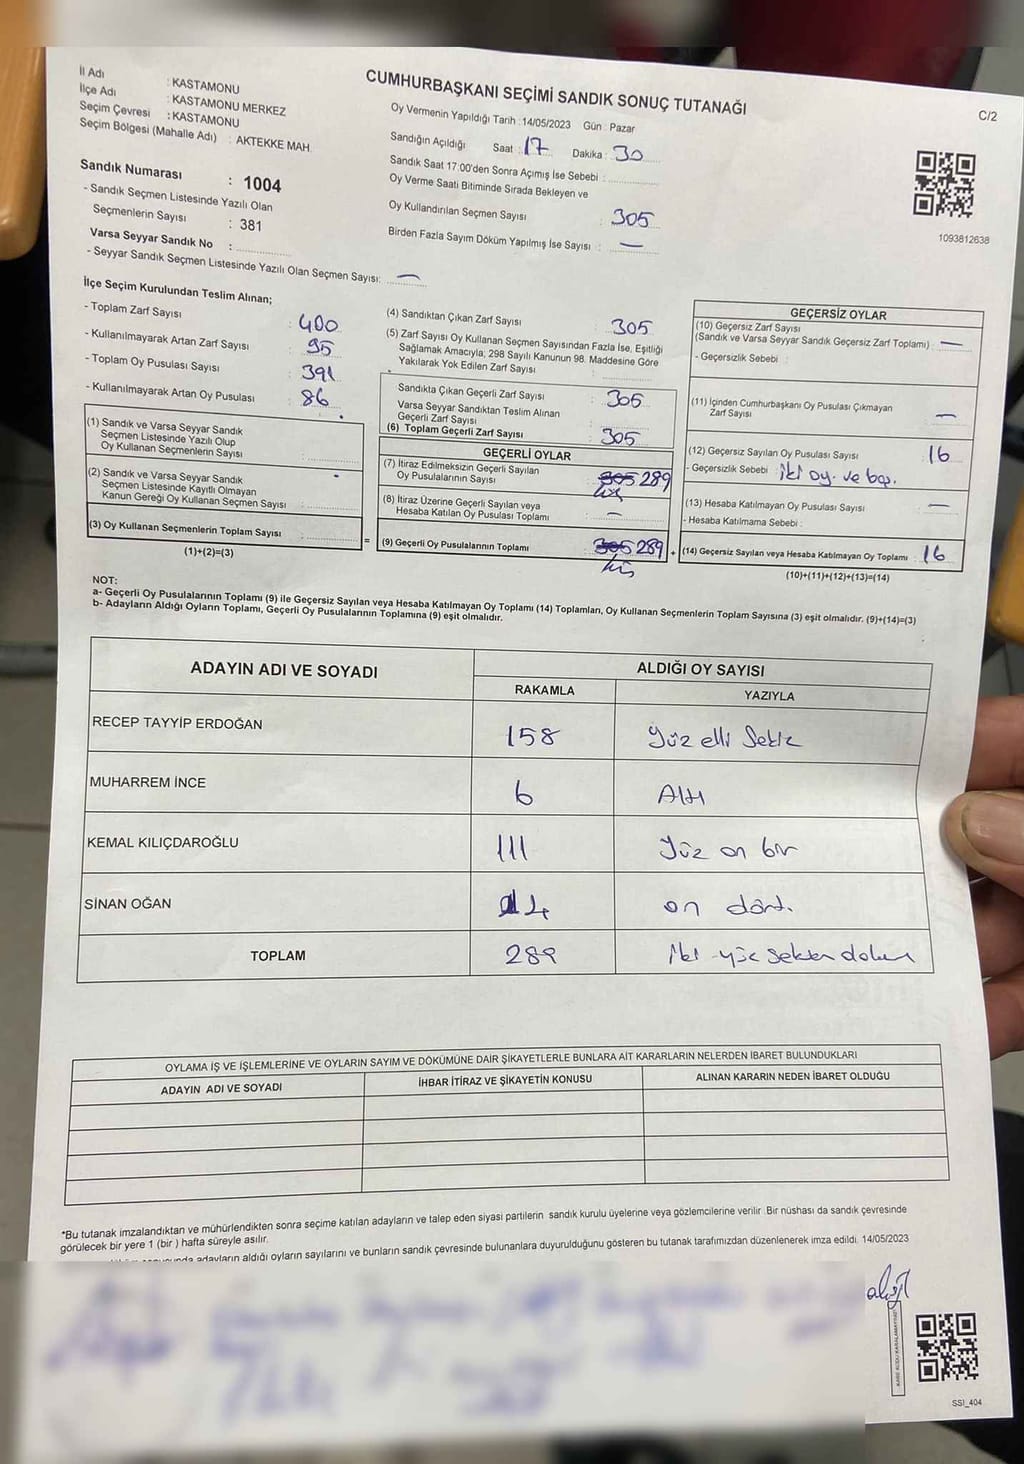 CUMHURBAŞKANI SEÇİMİ SANDIK SONUÇ TUTANAĞI
C/2
İl Adı : KASTAMONU
İlçe Adı : KASTAMONU MERKEZ
Seçim Çevresi : KASTAMONU
Seçim Bölgesi (Mahalle Adı) : AKTEKKE MAH
Sandık Numarası : 1004
- Sandık Seçmen Listesinde Yazılı Olan
Seçmenlerin Sayısı : 381
Varsa Seyyar Sandık No :
- Seyyar Sandık Seçmen Listesinde Yazılı Olan Seçmen Sayısı: —
Oy Vermenin Yapıldığı Tarih :14/05/2023 Gün : Pazar
Sandığın Açıldığı Saat : 17 Dakika : 30
Sandık Saat 17:00'den Sonra Açımış İse Sebebi :
Oy Verme Saati Bitiminde Sırada Bekleyen ve
Oy Kullandırılan Seçmen Sayısı : 305
Birden Fazla Sayım Döküm Yapılmış İse Sayısı : —
1093812638
İlçe Seçim Kurulundan Teslim Alınan;
- Toplam Zarf Sayısı : 400
- Kullanılmayarak Artan Zarf Sayısı : 95
- Toplam Oy Pusulası Sayısı : 391
- Kullanılmayarak Artan Oy Pusulası : 86
(1) Sandık ve Varsa Seyyar Sandık
Seçmen Listesinde Yazılı Olup
Oy Kullanan Seçmenlerin Sayısı :
(2) Sandık ve Varsa Seyyar Sandık -
Seçmen Listesinde Kayıtlı Olmayan
Kanun Gereği Oy Kullanan Seçmen Sayısı :
(3) Oy Kullanan Seçmenlerin Toplam Sayısı :
(1)+(2)=(3)
=
(4) Sandıktan Çıkan Zarf Sayısı : 305
(5) Zarf Sayısı Oy Kullanan Seçmen Sayısından Fazla İse, Eşitliği
Sağlamak Amacıyla; 298 Sayılı Kanunun 98. Maddesine Göre
Yakılarak Yok Edilen Zarf Sayısı :
Sandıkta Çıkan Geçerli Zarf Sayısı : 305
Varsa Seyyar Sandıktan Teslim Alınan
Geçerli Zarf Sayısı :
(6) Toplam Geçerli Zarf Sayısı : 305
GEÇERLİ OYLAR
(7) İtiraz Edilmeksizin Geçerli Sayılan
Oy Pusulalarının Sayısı : 305 289
(8) İtiraz Üzerine Geçerli Sayılan veya
Hesaba Katılan Oy Pusulası Toplamı : —
(9) Geçerli Oy Pusulalarının Toplamı : 305 289
+
GEÇERSİZ OYLAR
(10) Geçersiz Zarf Sayısı
(Sandık ve Varsa Seyyar Sandık Geçersiz Zarf Toplamı) : —
- Geçersizlik Sebebi :
(11) İçinden Cumhurbaşkanı Oy Pusulası Çıkmayan
Zarf Sayısı : —
(12) Geçersiz Sayılan Oy Pusulası Sayısı : 16
- Geçersizlik Sebebi : iki oy. ve boş.
(13) Hesaba Katılmayan Oy Pusulası Sayısı : —
- Hesaba Katılmama Sebebi :
(14) Geçersiz Sayılan veya Hesaba Katılmayan Oy Toplamı : 16
(10)+(11)+(12)+(13)=(14)
NOT:
a- Geçerli Oy Pusulalarının Toplamı (9) ile Geçersiz Sayılan veya Hesaba Katılmayan Oy Toplamı (14) Toplamları, Oy Kullanan Seçmenlerin Toplam Sayısına (3) eşit olmalıdır. (9)+(14)=(3)
b- Adayların Aldığı Oyların Toplamı, Geçerli Oy Pusulalarının Toplamına (9) eşit olmalıdır.
ADAYIN ADI VE SOYADI ALDIĞI OY SAYISI
RAKAMLA YAZIYLA
RECEP TAYYİP ERDOĞAN 158 yüz elli sekiz
MUHARREM İNCE 6 Altı
KEMAL KILIÇDAROĞLU 111 yüz on bir
SİNAN OĞAN 14 on dört.
TOPLAM 289 iki yüz seksen dokuz
OYLAMA İŞ VE İŞLEMLERİNE VE OYLARIN SAYIM VE DÖKÜMÜNE DAİR ŞİKAYETLERLE BUNLARA AİT KARARLARIN NELERDEN İBARET BULUNDUKLARI
ADAYIN ADI VE SOYADI İHBAR İTİRAZ VE ŞİKAYETİN KONUSU ALINAN KARARIN NEDEN İBARET OLDUĞU
*Bu tutanak imzalandıktan ve mühürlendikten sonra seçime katılan adayların ve talep eden siyasi partilerin sandık kurulu üyelerine veya gözlemcilerine verilir .Bir nüshası da sandık çevresinde
görülecek bir yere 1 (bir ) hafta süreyle asılır.
adayların aldığı oyların sayılarını ve bunların sandık çevresinde bulunanlara duyurulduğunu gösteren bu tutanak tarafımızdan düzenlenerek imza edildi. 14/05/2023
KARE KODU KARALAMAYINIZ
SSI_404